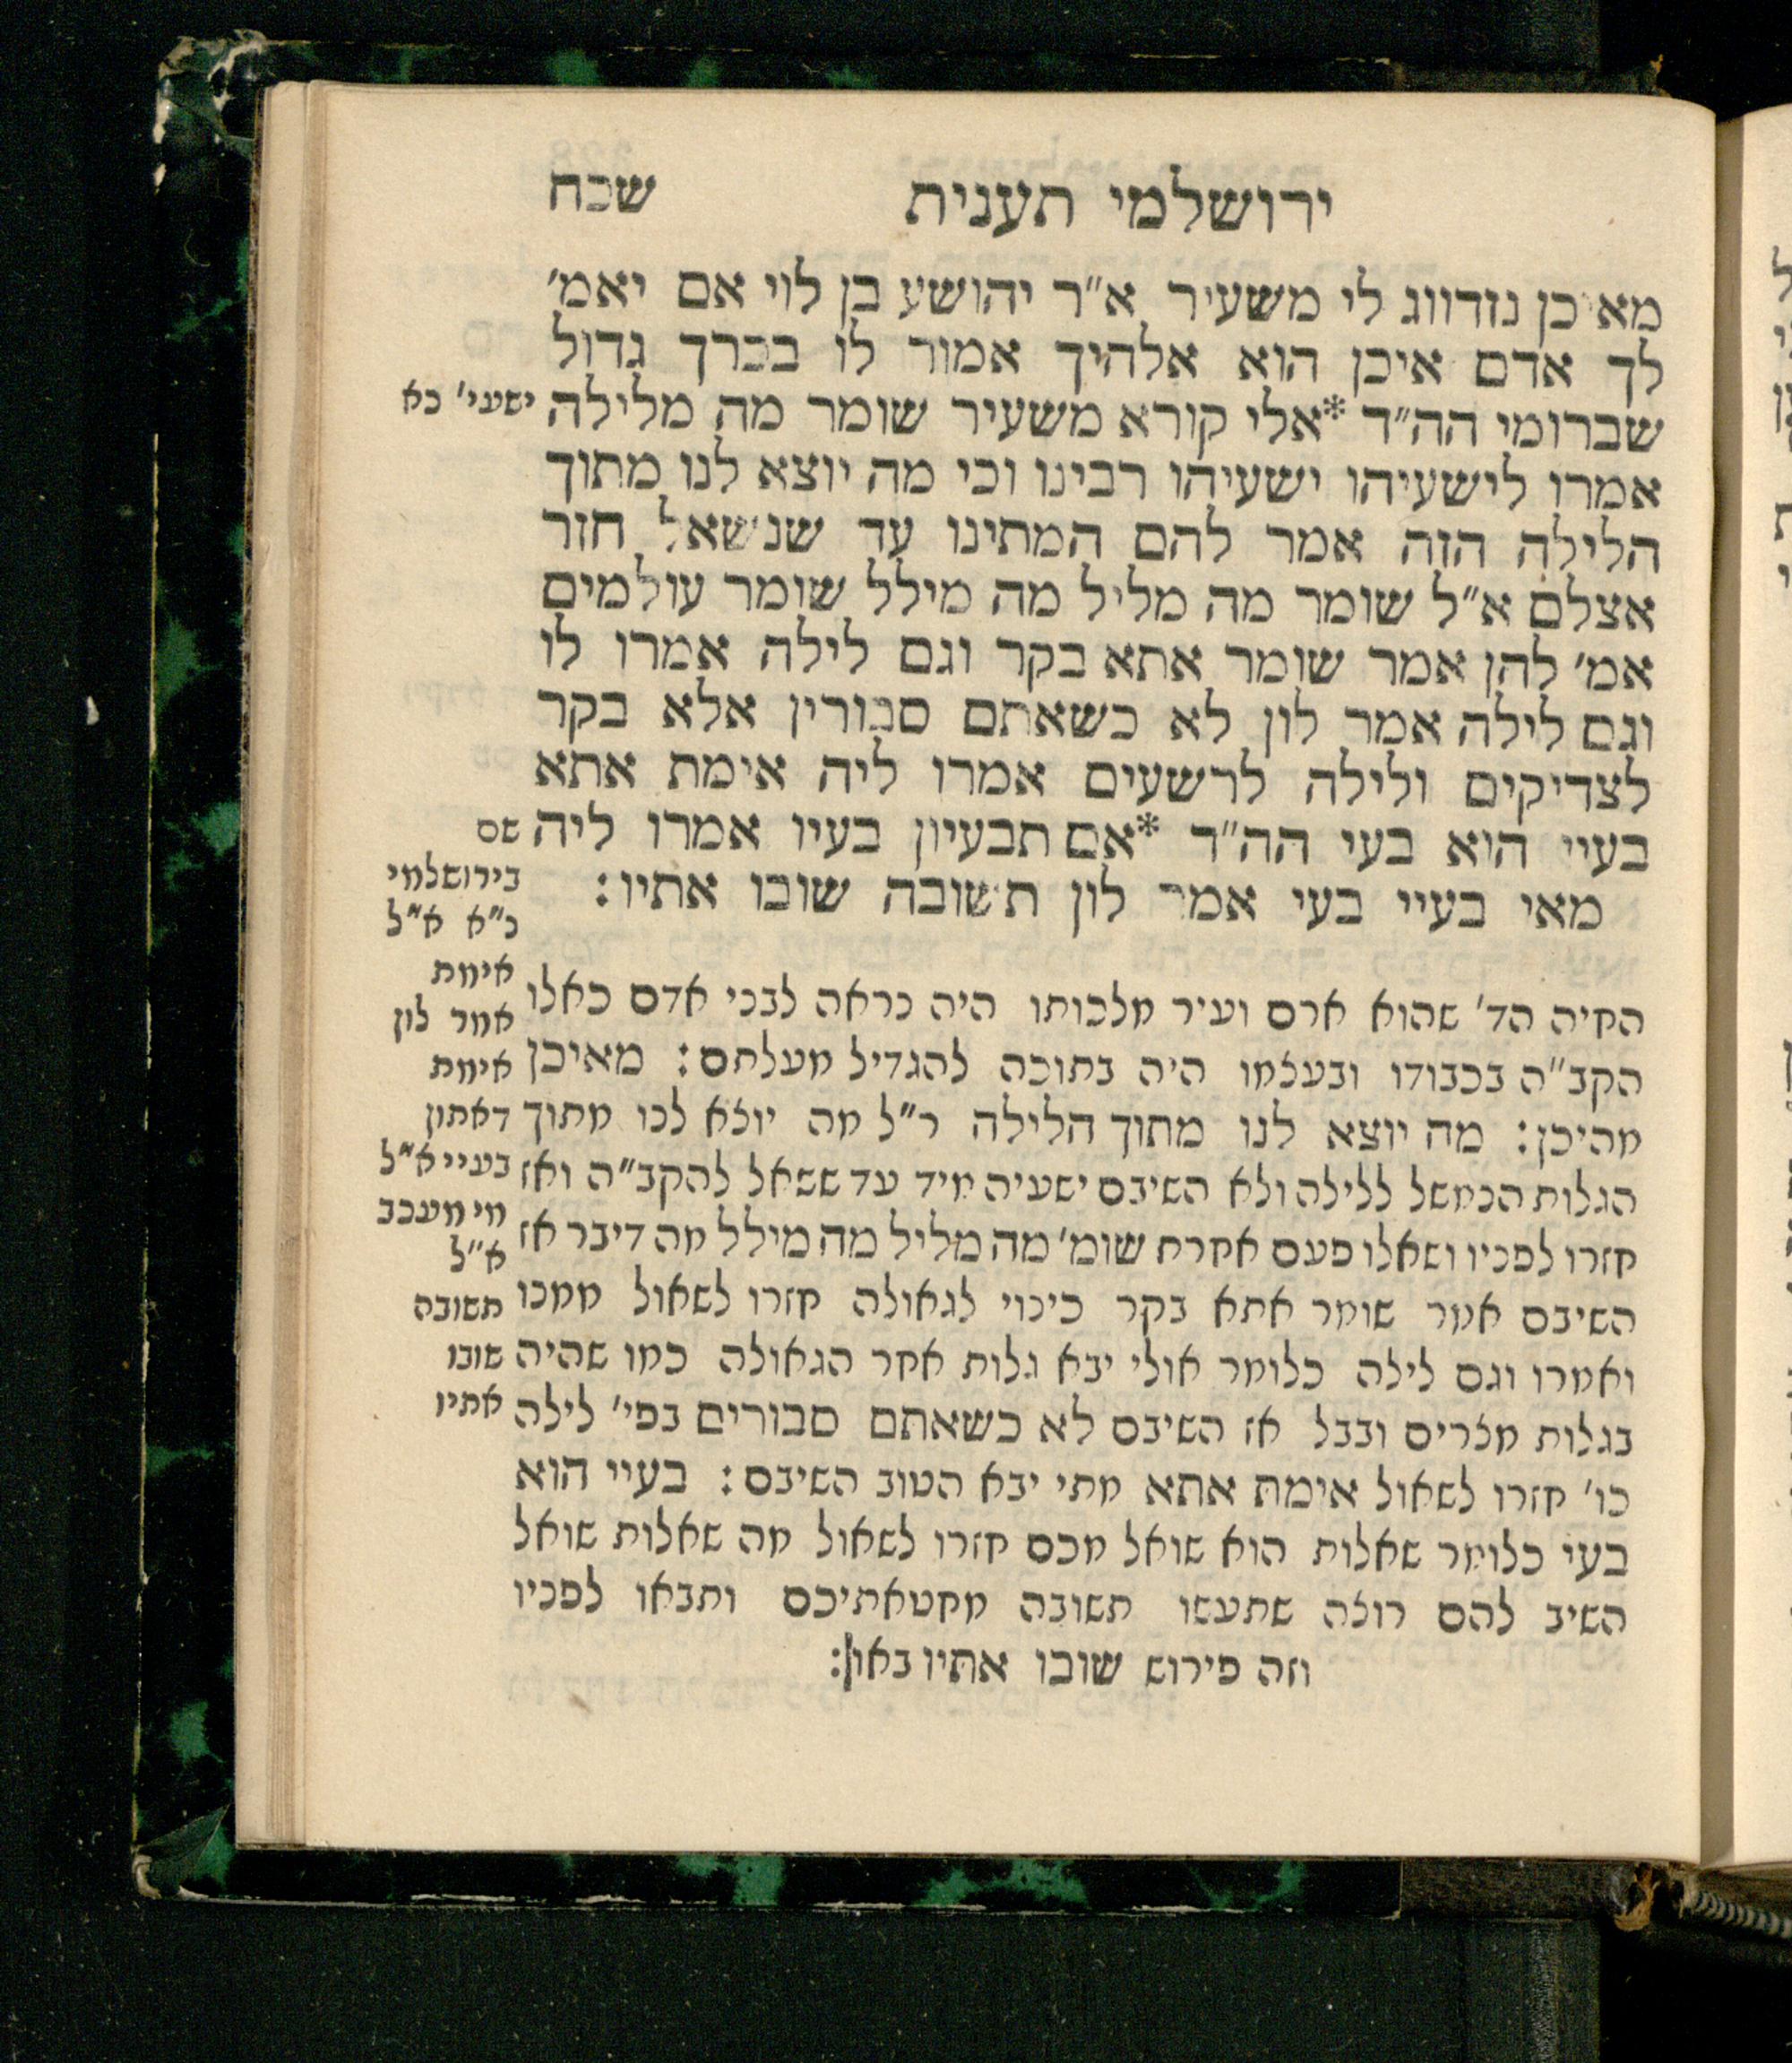 ירושלמי תענית שכח
מאיכן נזדווג לי משעיר א"ר יהושע בן לוי אם יאמ'
לך אדם איכן הוא אלהיך אמור לו בכרך גדול
שברומי הה"ד *אלי קורא משעיר שומר מה מלילה
אמרו לישעיהו ישעיהו רבינו וכי מה יוצא לנו מתוך
הלילה הזה אמר להם המתינו עד שנשאל חזר
אצלם א"ל שומר מה מליל מה מילל שומר עולמים
אמ' להן אמר שומר אתא בקר וגם לילה אמרו לו
וגם לילה אמר לון לא כשאתם סבורין אלא בקר
לצדיקים ולילה לרשעים אמרו ליה אימת אתא
בעיי הוא בעי הה"ד *אם תבעיון בעיו אמרו ליה
מאי בעיי בעי אמר לון תשובה שובו אתיו:
הקיה הד' שהוא ארם ועיר מלכותו היה נראה לבני אדם כאלו
הקב"ה בכבודו ובעצמו היה בתוכה להגדיל מעלתם: מאיכן
מהיכן: מה יוצא לנו מתוך הלילה ר"ל מה יוצא לנו מתוך
הגלות הנמשל ללילה ולא השיבם ישעיה מיד עד ששאל להקב"ה ואז
חזרו לפניו ושאלו פעם אחרת שומ' מה מליל מה מילל מה דיבר אז
השיבם אמר שומר אתא בקר כינוי לגאולה חזרו לשאול ממנו
ואמרו וגם לילה כלומר אולי יבא גלות אחר הגאולה כמו שהיה
בגלות מצרים ובבל אז השיבם לא כשאתם סבורים בפי' לילה
כו' חזרו לשאול אימת אתא מתי יבא הטוב השיבם: בעיי הוא
בעי כלומר שאלות הוא שואל מכם חזרו לשאול מה שאלות שואל
השיב להם רוצה שתעשו תשובה מחטאתיכם ותבאו לפניו
וזה פירוש שובו אתיו באו:
ישעי' כא
שם
בירושלמי
כ"א א"ל
אימת
אמר לון
אימת
דאתון
בעיי א"ל
מי מעכב
א"ל
תשובה
שובו
אתיו